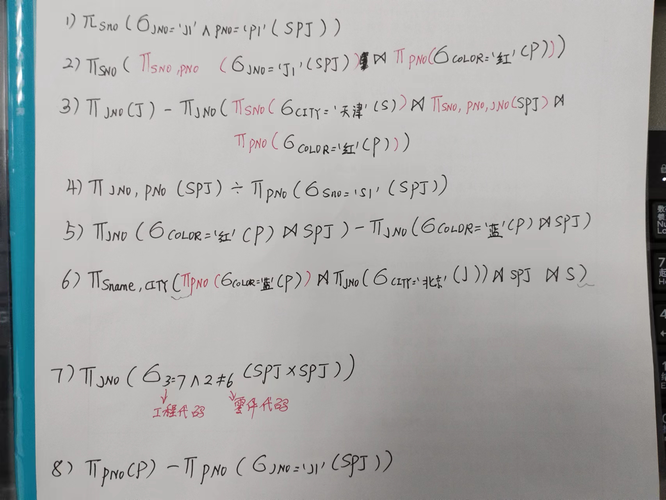 1) π_Sno (σ_JNO='J1' ∧ PNO='P1' (SPJ))
2) π_Sno (π_Sno,PNO (σ_JNO='J1' (SPJ)) ⋈ π_PNO (σ_COLOR='红' (P)))
3) π_JNO (J) - π_JNO (π_Sno (σ_CITY='天津' (S)) ⋈ π_Sno,PNO,JNO (SPJ) ⋈
π_PNO (σ_COLOR='红' (P)))
4) π_JNO,PNO (SPJ) ÷ π_PNO (σ_Sno='S1' (SPJ))
5) π_JNO (σ_COLOR='红' (P) ⋈ SPJ) - π_JNO (σ_COLOR='蓝' (P) ⋈ SPJ)
6) π_Sname,CITY (π_PNO (σ_COLOR='蓝' (P)) ⋈ π_JNO (σ_CITY='北京' (J)) ⋈ SPJ ⋈ S)
7) π_JNO (σ_3=7 ∧ 2≠6 (SPJ × SPJ))
工程代码 零件代码
8) π_PNO (P) - π_PNO (σ_JNO='J1' (SPJ))